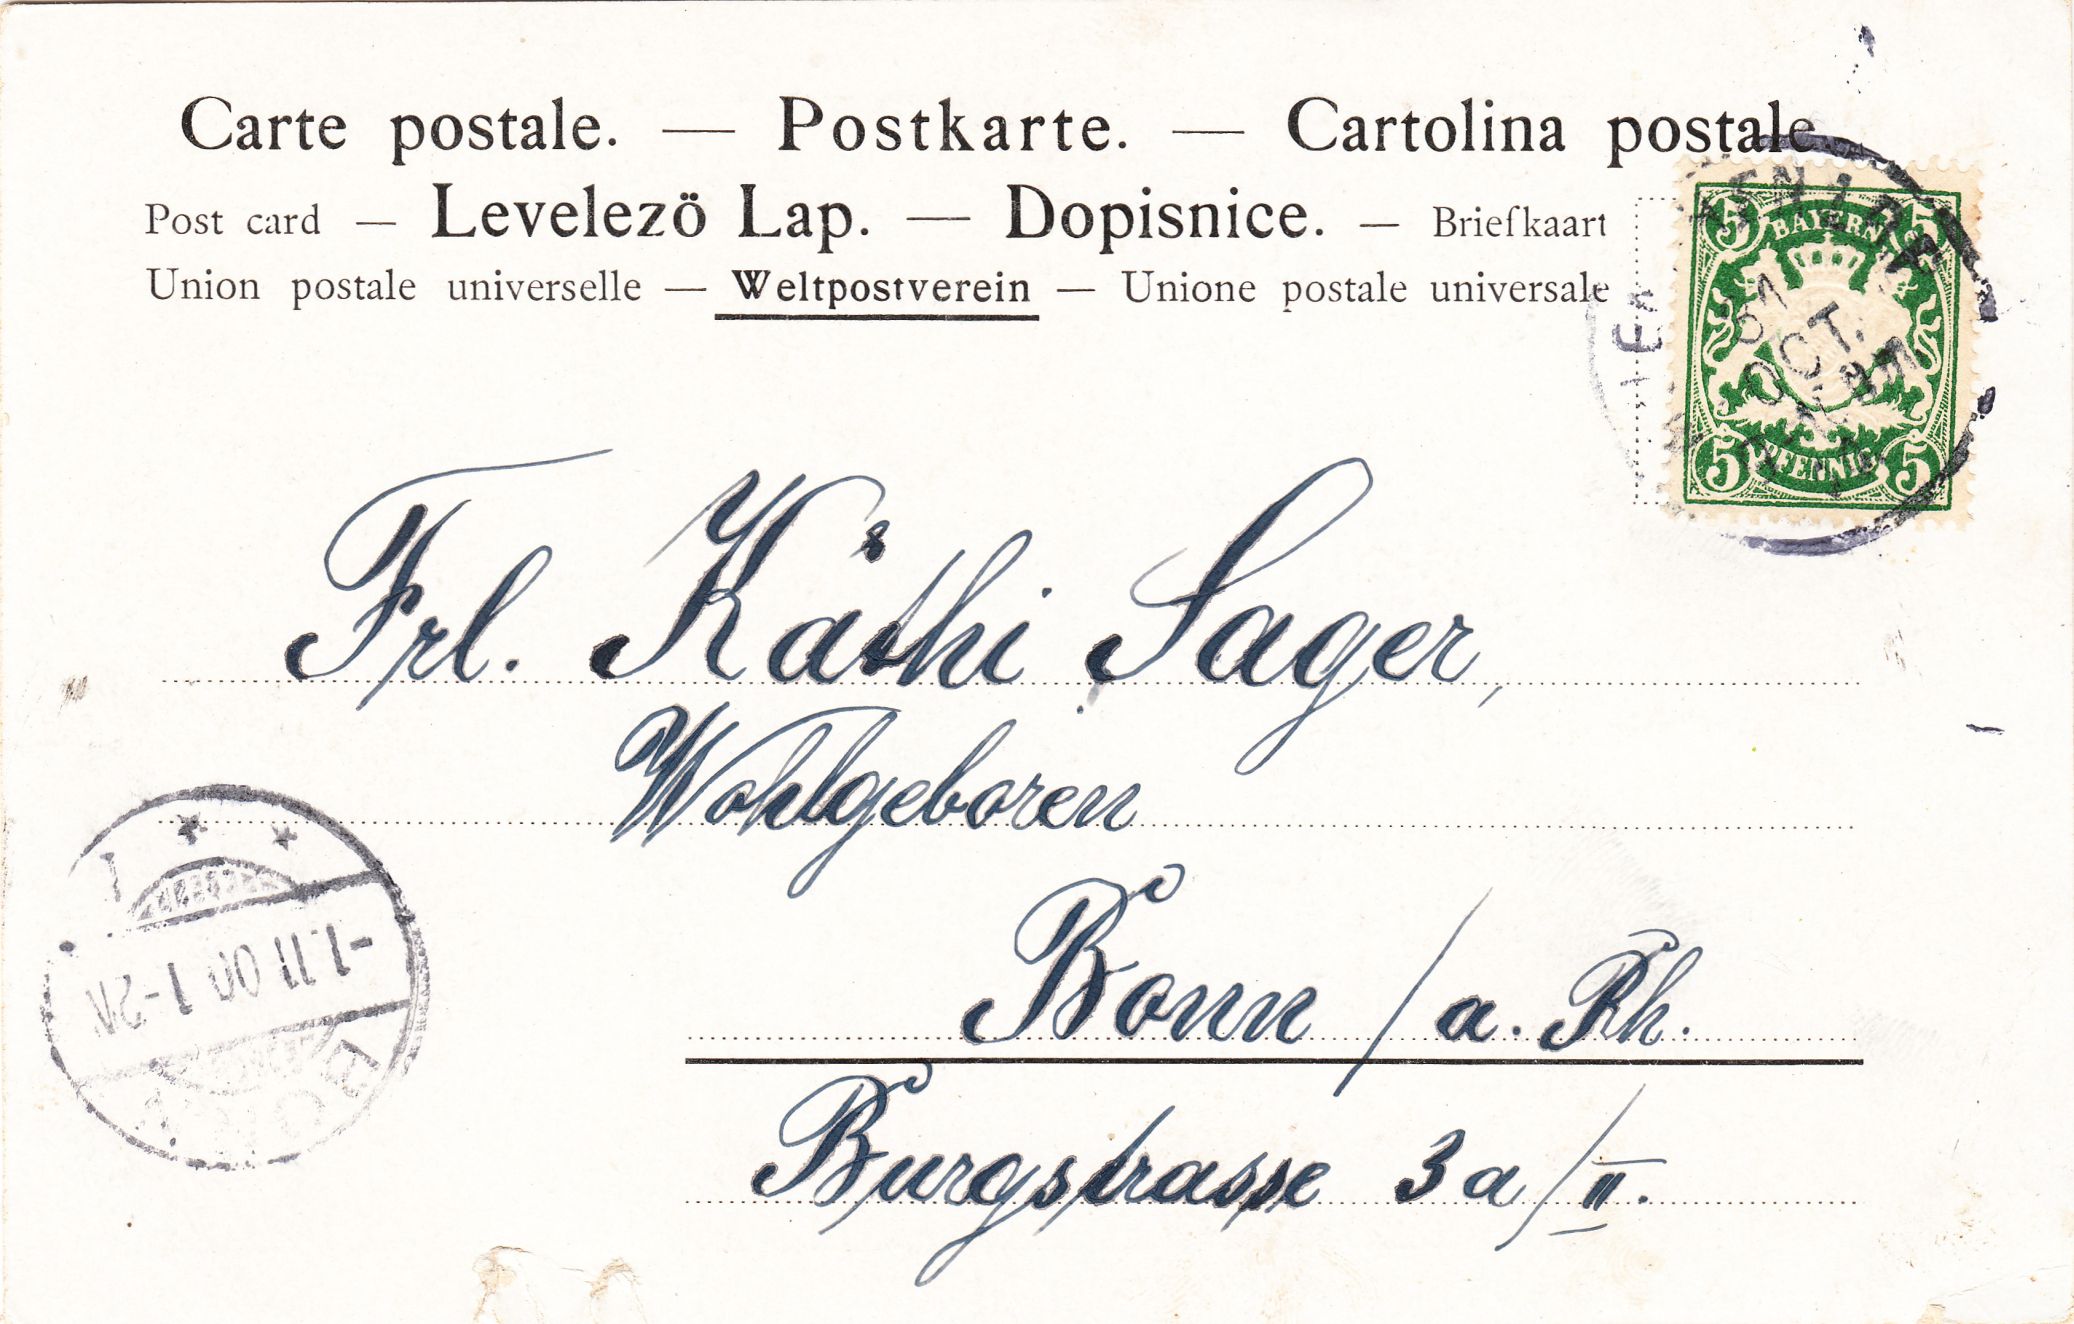 Carte postale. — Postkarte. — Cartolina postale
Post card — Levelezö Lap. — Dopisnice. — Briefkaart
Union postale universelle — Weltpostverein — Unione postale universale
5 BAYERN 5
31
OCT.
5 PFENNIG 5
Frl. Käthi Sager,
Wohlgeboren
Bonn / a. Rh.
Burgstrasse 3a/II.
-1.11.00 1-2N
BONN
1